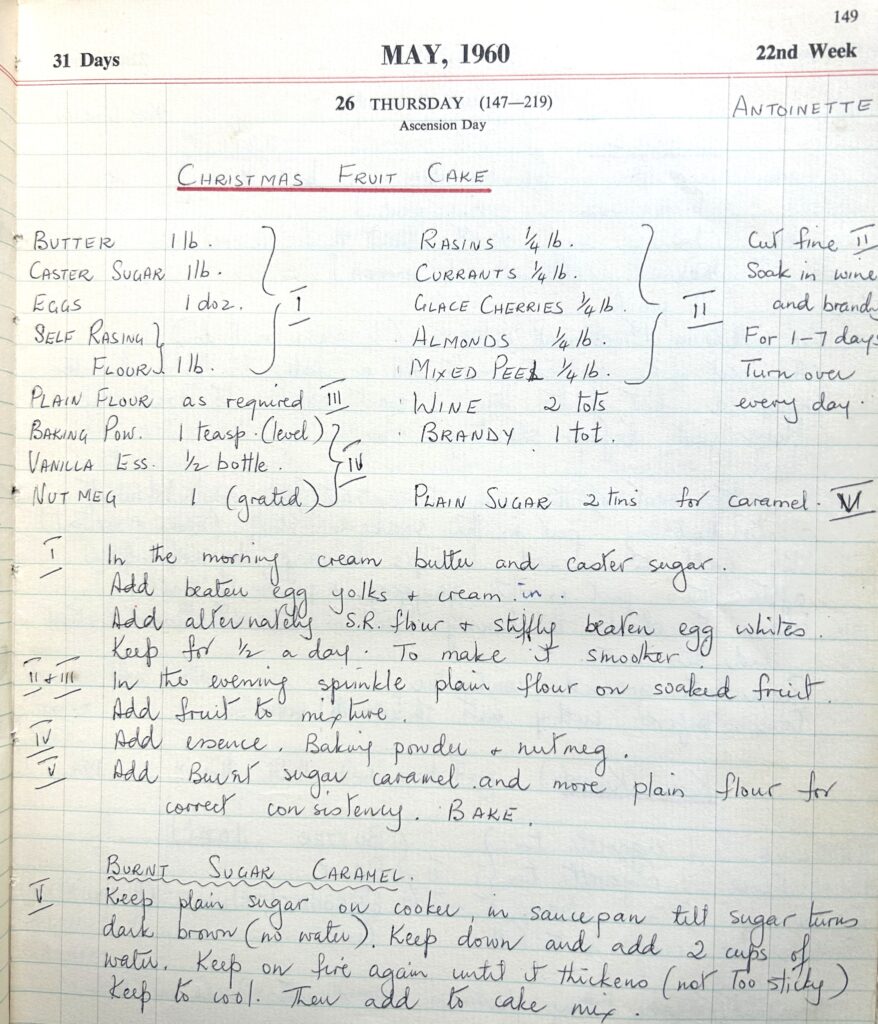 149
31 Days MAY, 1960 22nd Week
26 THURSDAY (147—219) ANTOINETTE
Ascension Day
CHRISTMAS FRUIT CAKE
BUTTER 1 lb. RASINS 1/4 lb. Cut fine II
CASTER SUGAR 1lb. CURRANTS 1/4 lb. Soak in wine
EGGS 1 doz. I GLACE CHERRIES 1/4 lb. II and brandy
SELF RASING ALMONDS 1/4 lb. For 1-7 days
FLOUR 1 lb. MIXED PEEL 1/4 lb. Turn over
PLAIN FLOUR as required III WINE 2 tots every day.
BAKING POW. 1 teasp. (level) BRANDY 1 tot.
VANILLA ESS. 1/2 bottle. IV
NUTMEG 1 (grated) PLAIN SUGAR 2 tins for caramel. V
I In the morning cream butter and caster sugar.
Add beaten egg yolks + cream in.
Add alternately S.R. flour + stiffly beaten egg whites.
Keep for 1/2 a day. To make it smoother.
II + III In the evening sprinkle plain flour on soaked fruit.
Add fruit to mixture.
IV Add essence. Baking powder + nutmeg.
V Add Burnt sugar caramel and more plain flour for
correct consistency. BAKE.
BURNT SUGAR CARAMEL.
V Keep plain sugar on cooker, in saucepan till sugar turns
dark brown (no water). Keep down and add 2 cups of
water. Keep on fire again until it thickens (not too sticky)
Keep to cool. Then add to cake mix.